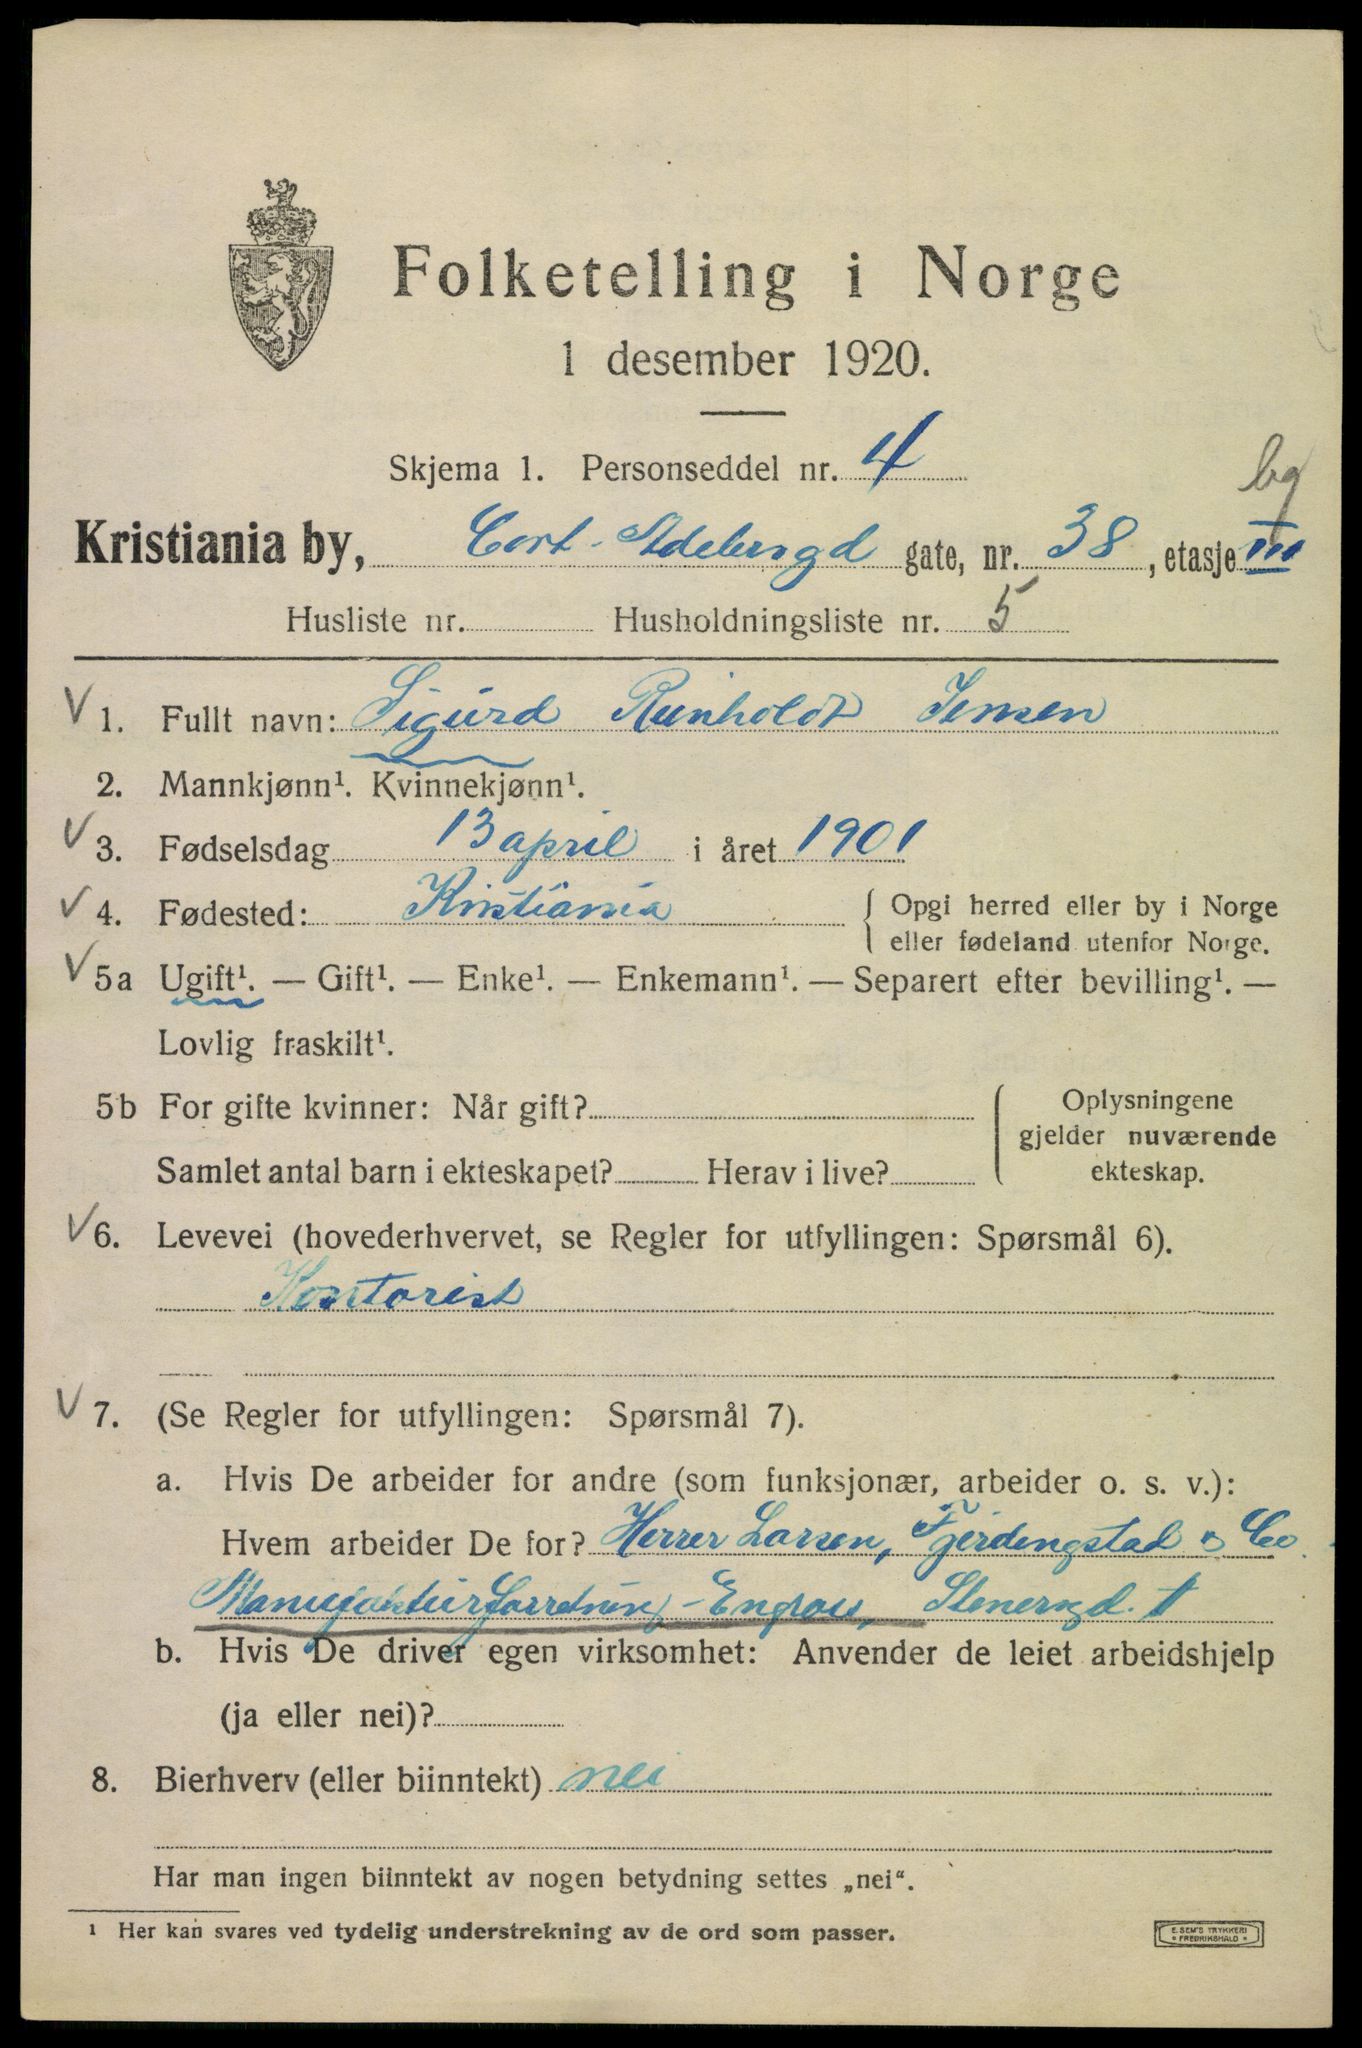 Folketelling i Norge
1 desember 1920.
Skjema 1. Personseddel nr. 4
bg
Kristiania by, Cort-Adelersgd gate, nr. 38, etasje III
Husliste nr. Husholdningsliste nr. 5
V 1. Fullt navn: Sigurd Reinholdt Jensen
2. Mannkjønn¹. Kvinnekjønn¹.
V 3. Fødselsdag 13 april i året 1901
V 4. Fødested: Kristiania { Opgi herred eller by i Norge
eller fødeland utenfor Norge.
V 5a Ugift¹. — Gift¹. — Enke¹. — Enkemann¹. — Separert efter bevilling¹. —
Lovlig fraskilt¹.
5b For gifte kvinner: Når gift? Oplysningene
gjelder nuværende
Samlet antal barn i ekteskapet? Herav i live? ekteskap.
V 6. Levevei (hovederhvervet, se Regler for utfyllingen: Spørsmål 6).
Kontorist
V 7. (Se Regler for utfyllingen: Spørsmål 7).
a. Hvis De arbeider for andre (som funksjonær, arbeider o. s. v.):
Hvem arbeider De for? Herrer Larsen, Fjerdengstad & Co.
Manufakturforretning-Engros, Stenersgd. 1
b. Hvis De driver egen virksomhet: Anvender de leiet arbeidshjelp
(ja eller nei)?
8. Bierhverv (eller biinntekt) nei
Har man ingen biinntekt av nogen betydning settes „nei“.
¹ Her kan svares ved tydelig understrekning av de ord som passer.
E. SEM'S TRYKKERI
FREDRIKSHALD